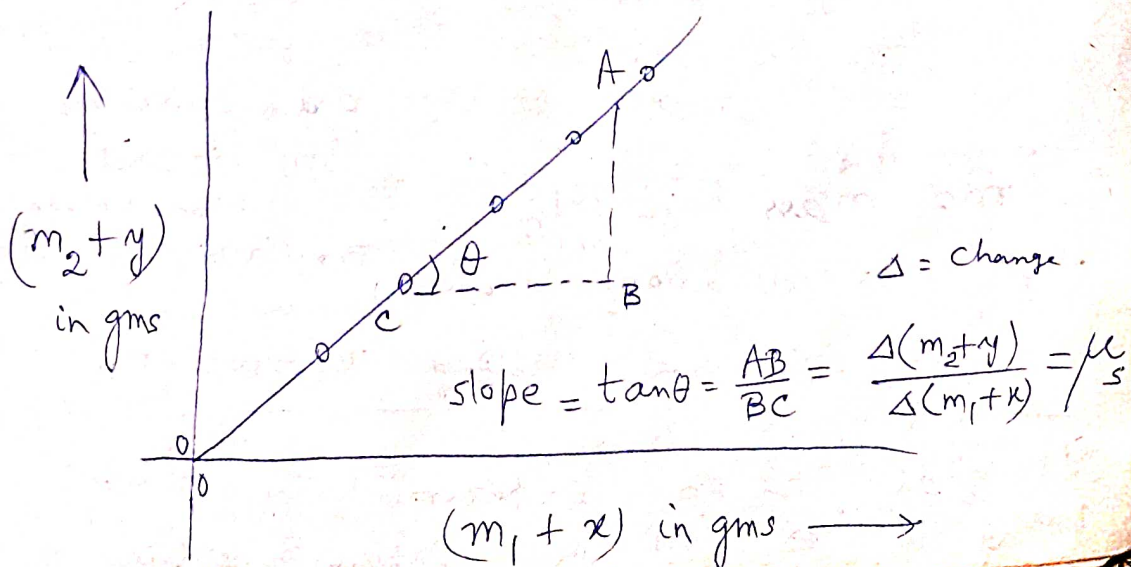 A
(m₂+y)
in gms
θ
Δ = Change.
B
C
slope = tanθ = AB/BC = Δ(m₂+y)/Δ(m₁+x) = μₛ
0
0
(m₁ + x) in gms